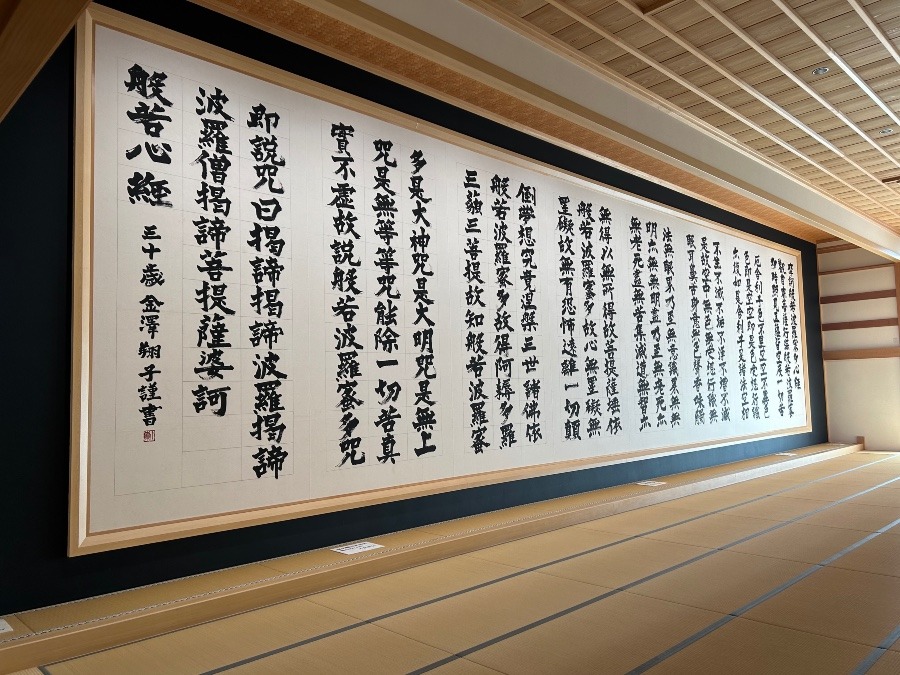 摩訶般若波羅蜜多心經
觀自在菩薩行深般若波羅蜜
多時照見五蘊皆空度一切苦
厄舎利子色不異空空不異色
色即是空空即是色受想行識
亦復如是舎利子是諸法空相
不生不滅不垢不浄不増不減
是故空中無色無受想行識無
眼耳鼻舌身意無色聲香味觸
法無眼界乃至無意識界無無
明亦無無明盡乃至無老死亦
無老死盡無苦集滅道無智亦
無得以無所得故菩提薩埵依
般若波羅蜜多故心無罣礙無
罣礙故無有恐怖遠離一切顛
倒夢想究竟涅槃三世諸佛依
般若波羅蜜多故得阿耨多羅
三藐三菩提故知般若波羅蜜
多是大神咒是大明咒是無上
咒是無等等咒能除一切苦真
實不虛故説般若波羅蜜多咒
即説咒曰揭諦揭諦波羅揭諦
波羅僧揭諦菩提薩婆訶
般若心經 三十歳 金澤翔子謹書